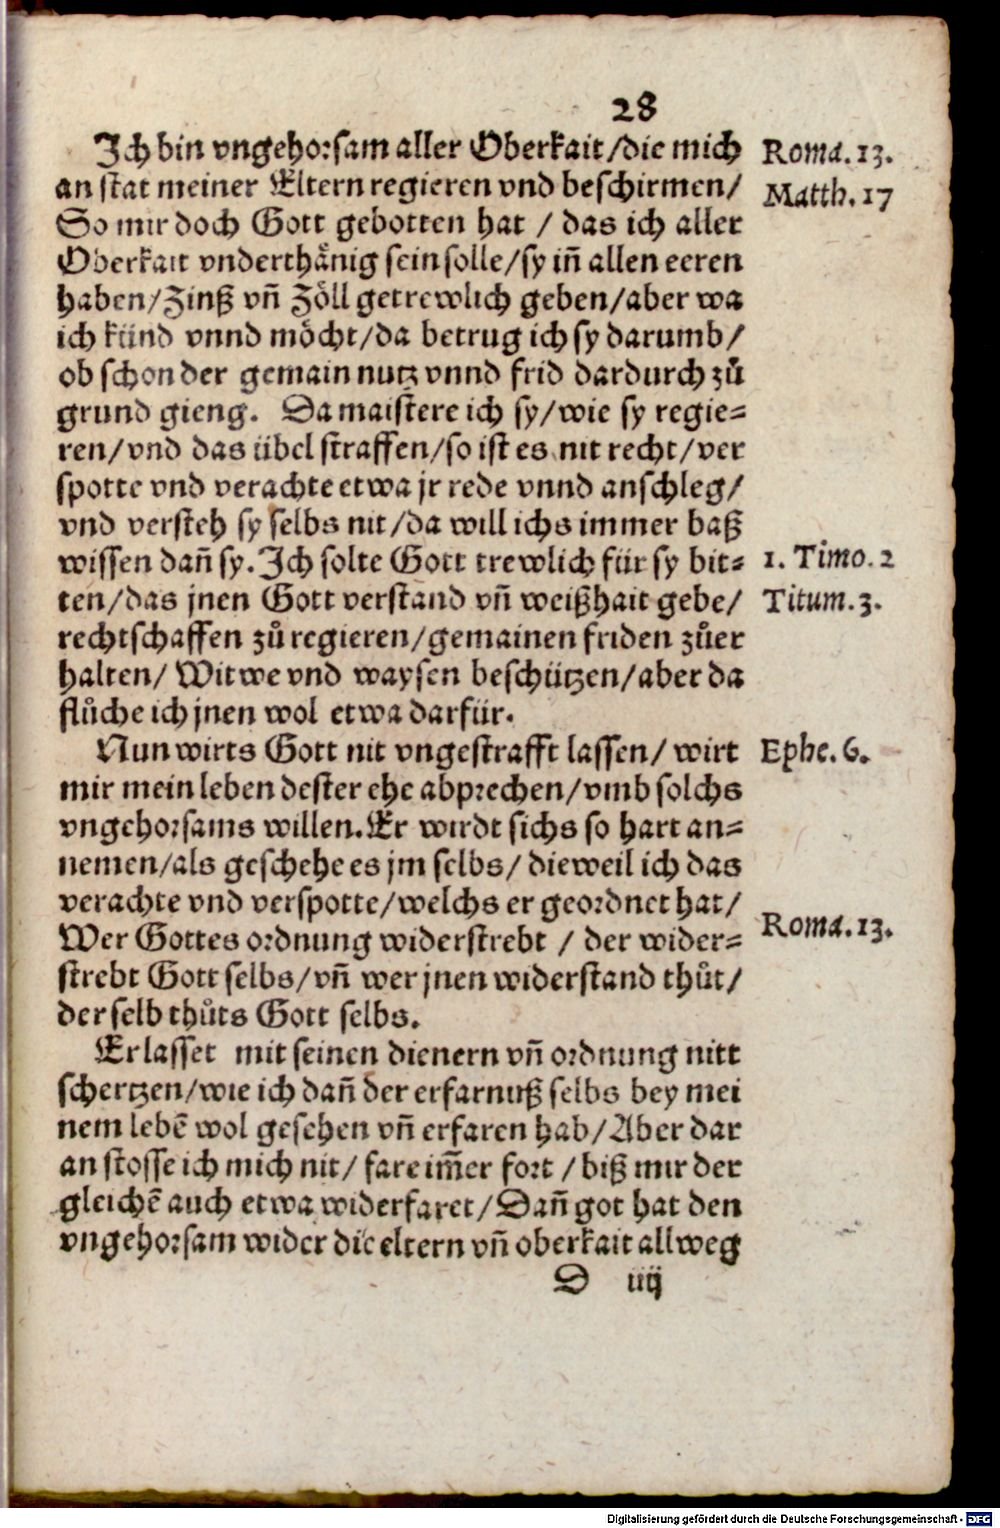 28
Ich bin vngehorsam aller Oberkait/die mich
an stat meiner Eltern regieren vnd beschirmen/
So mir doch Gott gebotten hat / das ich aller
Oberkait vnderthänig sein solle/sy iñ allen eeren
haben/Zinß vñ Zöll getrewlich geben/aber wa
ich künd vnnd möcht/da betrug ich sy darumb/
ob schon der gemain nutz vnnd frid dardurch zů
grund gieng. Da maistere ich sy/wie sy regie=
ren/vnd das übel straffen/so ist es nit recht/ver
spotte vnd verachte etwa jr rede vnnd anschleg/
vnd versteh sy selbs nit/da will ichs immer baß
wissen dañ sy. Ich solte Gott trewlich für sy bit=
ten/das jnen Gott verstand vñ weißhait gebe/
rechtschaffen zů regieren/gemainen friden zůer
halten/ Witwe vnd waysen beschützen/aber da
flůche ich jnen wol etwa darfür.
Nun wirts Gott nit vngestrafft lassen/ wirt
mir mein leben dester ehe abprechen/vmb solchs
vngehorsams willen. Er wirdt sichs so hart an=
nemen/als geschehe es jm selbs/ dieweil ich das
verachte vnd verspotte/welchs er geordnet hat/
Wer Gottes ordnung widerstrebt / der wider=
strebt Gott selbs/vñ wer jnen widerstand thůt/
der selb thůts Gott selbs.
Er lasset mit seinen dienern vñ ordnung nitt
schertzen/wie ich dañ der erfarnuß selbs bey mei
nem lebē wol gesehen vñ erfaren hab/Aber dar
an stosse ich mich nit/ fare im̃er fort / biß mir der
gleichē auch etwa widerfaret/Dañ got hat den
vngehorsam wider die eltern vñ oberkait allweg
D iiij
Roma. 13.
Matth. 17
1. Timo. 2
Titum. 3.
Ephe. 6.
Roma. 13.
Digitalisierung gefördert durch die Deutsche Forschungsgemeinschaft - DFG